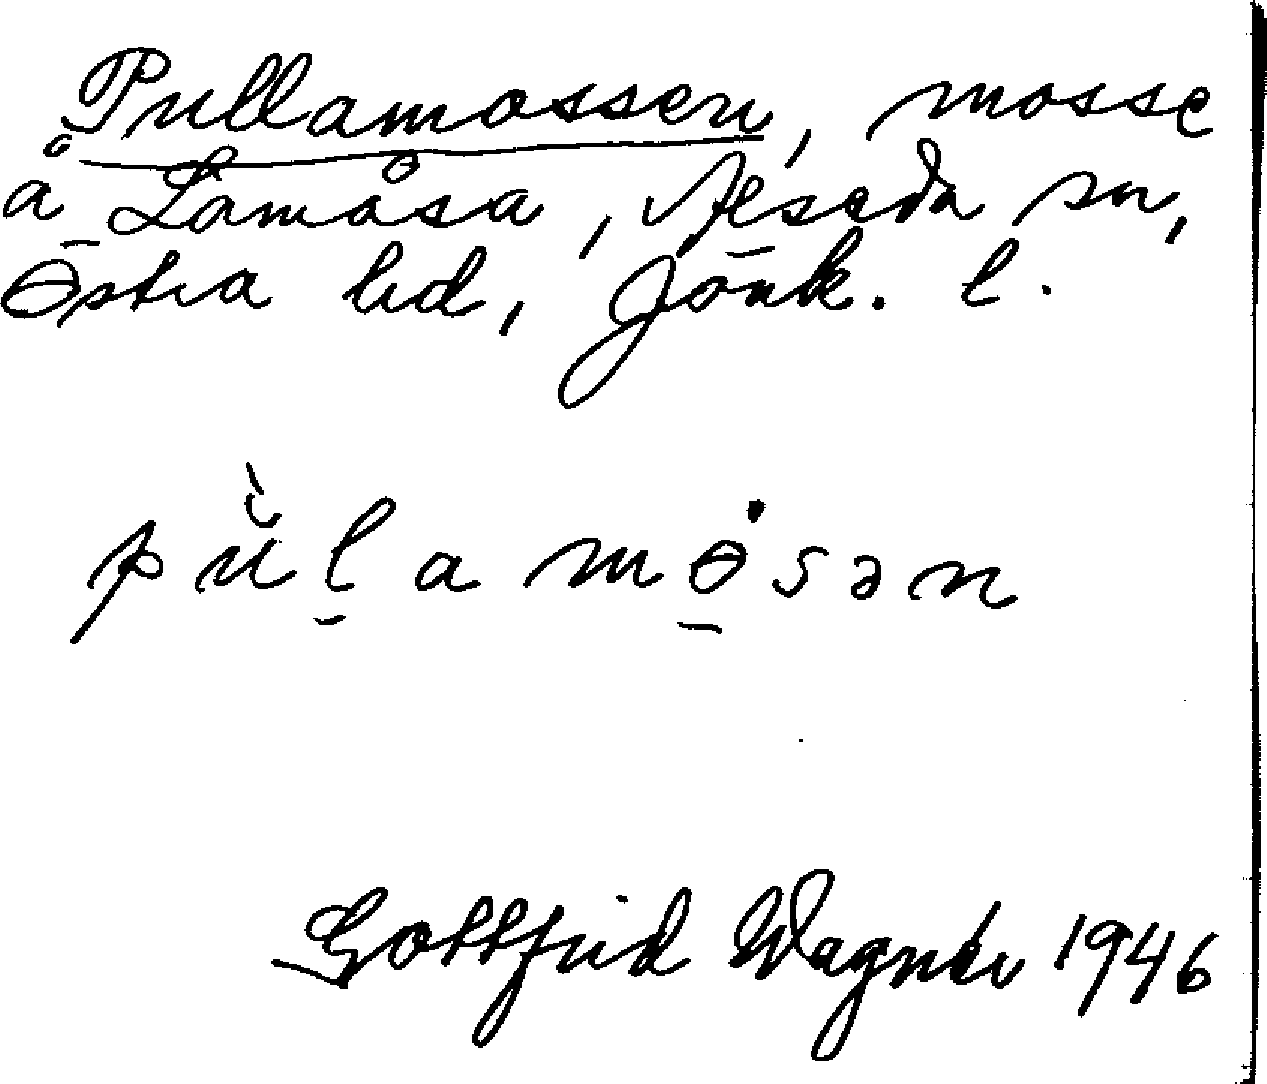 Pullamossen, mosse
å Lamåsa, Alseda sn,
Östra hd, Jönk. l.
pŭ̀l̠amɵ̠̇sən
Gottfrid Wagnér 1946